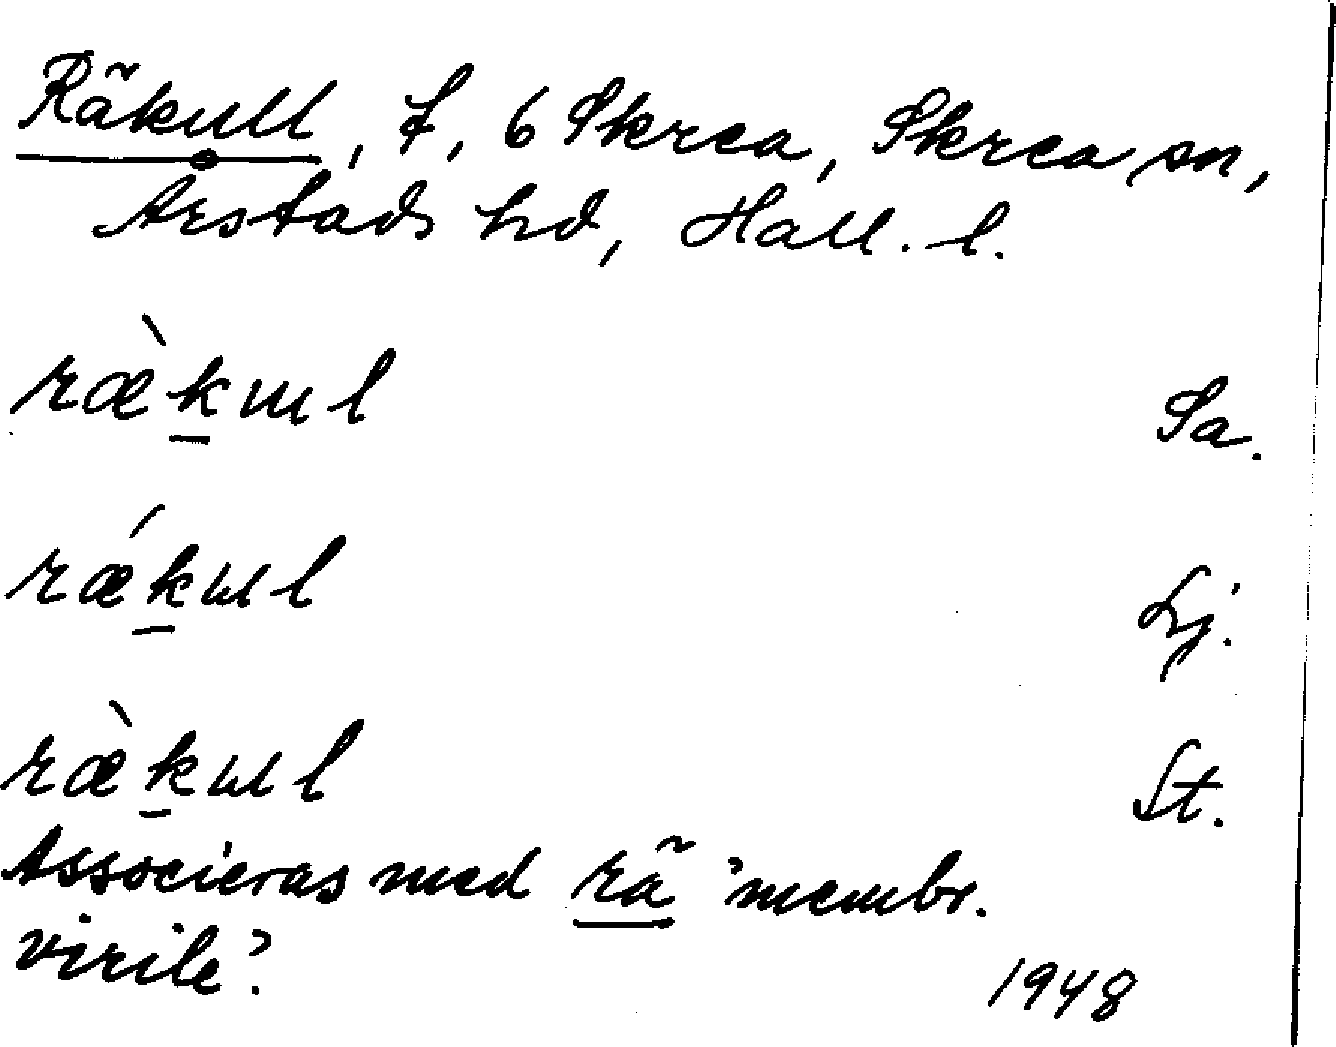 Räkull, f, 6 Skrea, Skrea sn,
Årstads hd, Hall. l.
ræ̀kul Sa.
rækul Lj.
ræ̀kul St.
Associeras med rä 'membr.
virile'.
1948